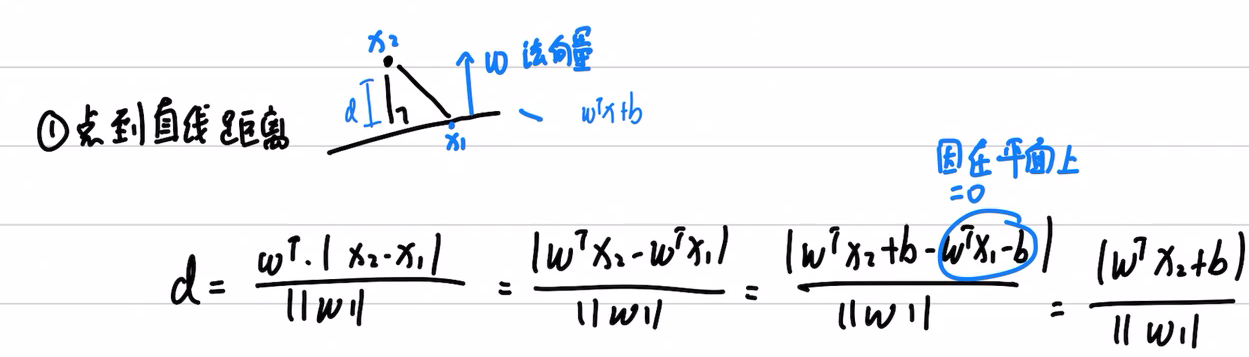 x₂
w 法向量
d
wᵀx+b
①点到直线距离
x₁
因在平面上
=0
d = wᵀ·|x₂-x₁| / ||w|| = |wᵀx₂-wᵀx₁| / ||w|| = |wᵀx₂+b-wᵀx₁-b| / ||w|| = |wᵀx₂+b| / ||w||